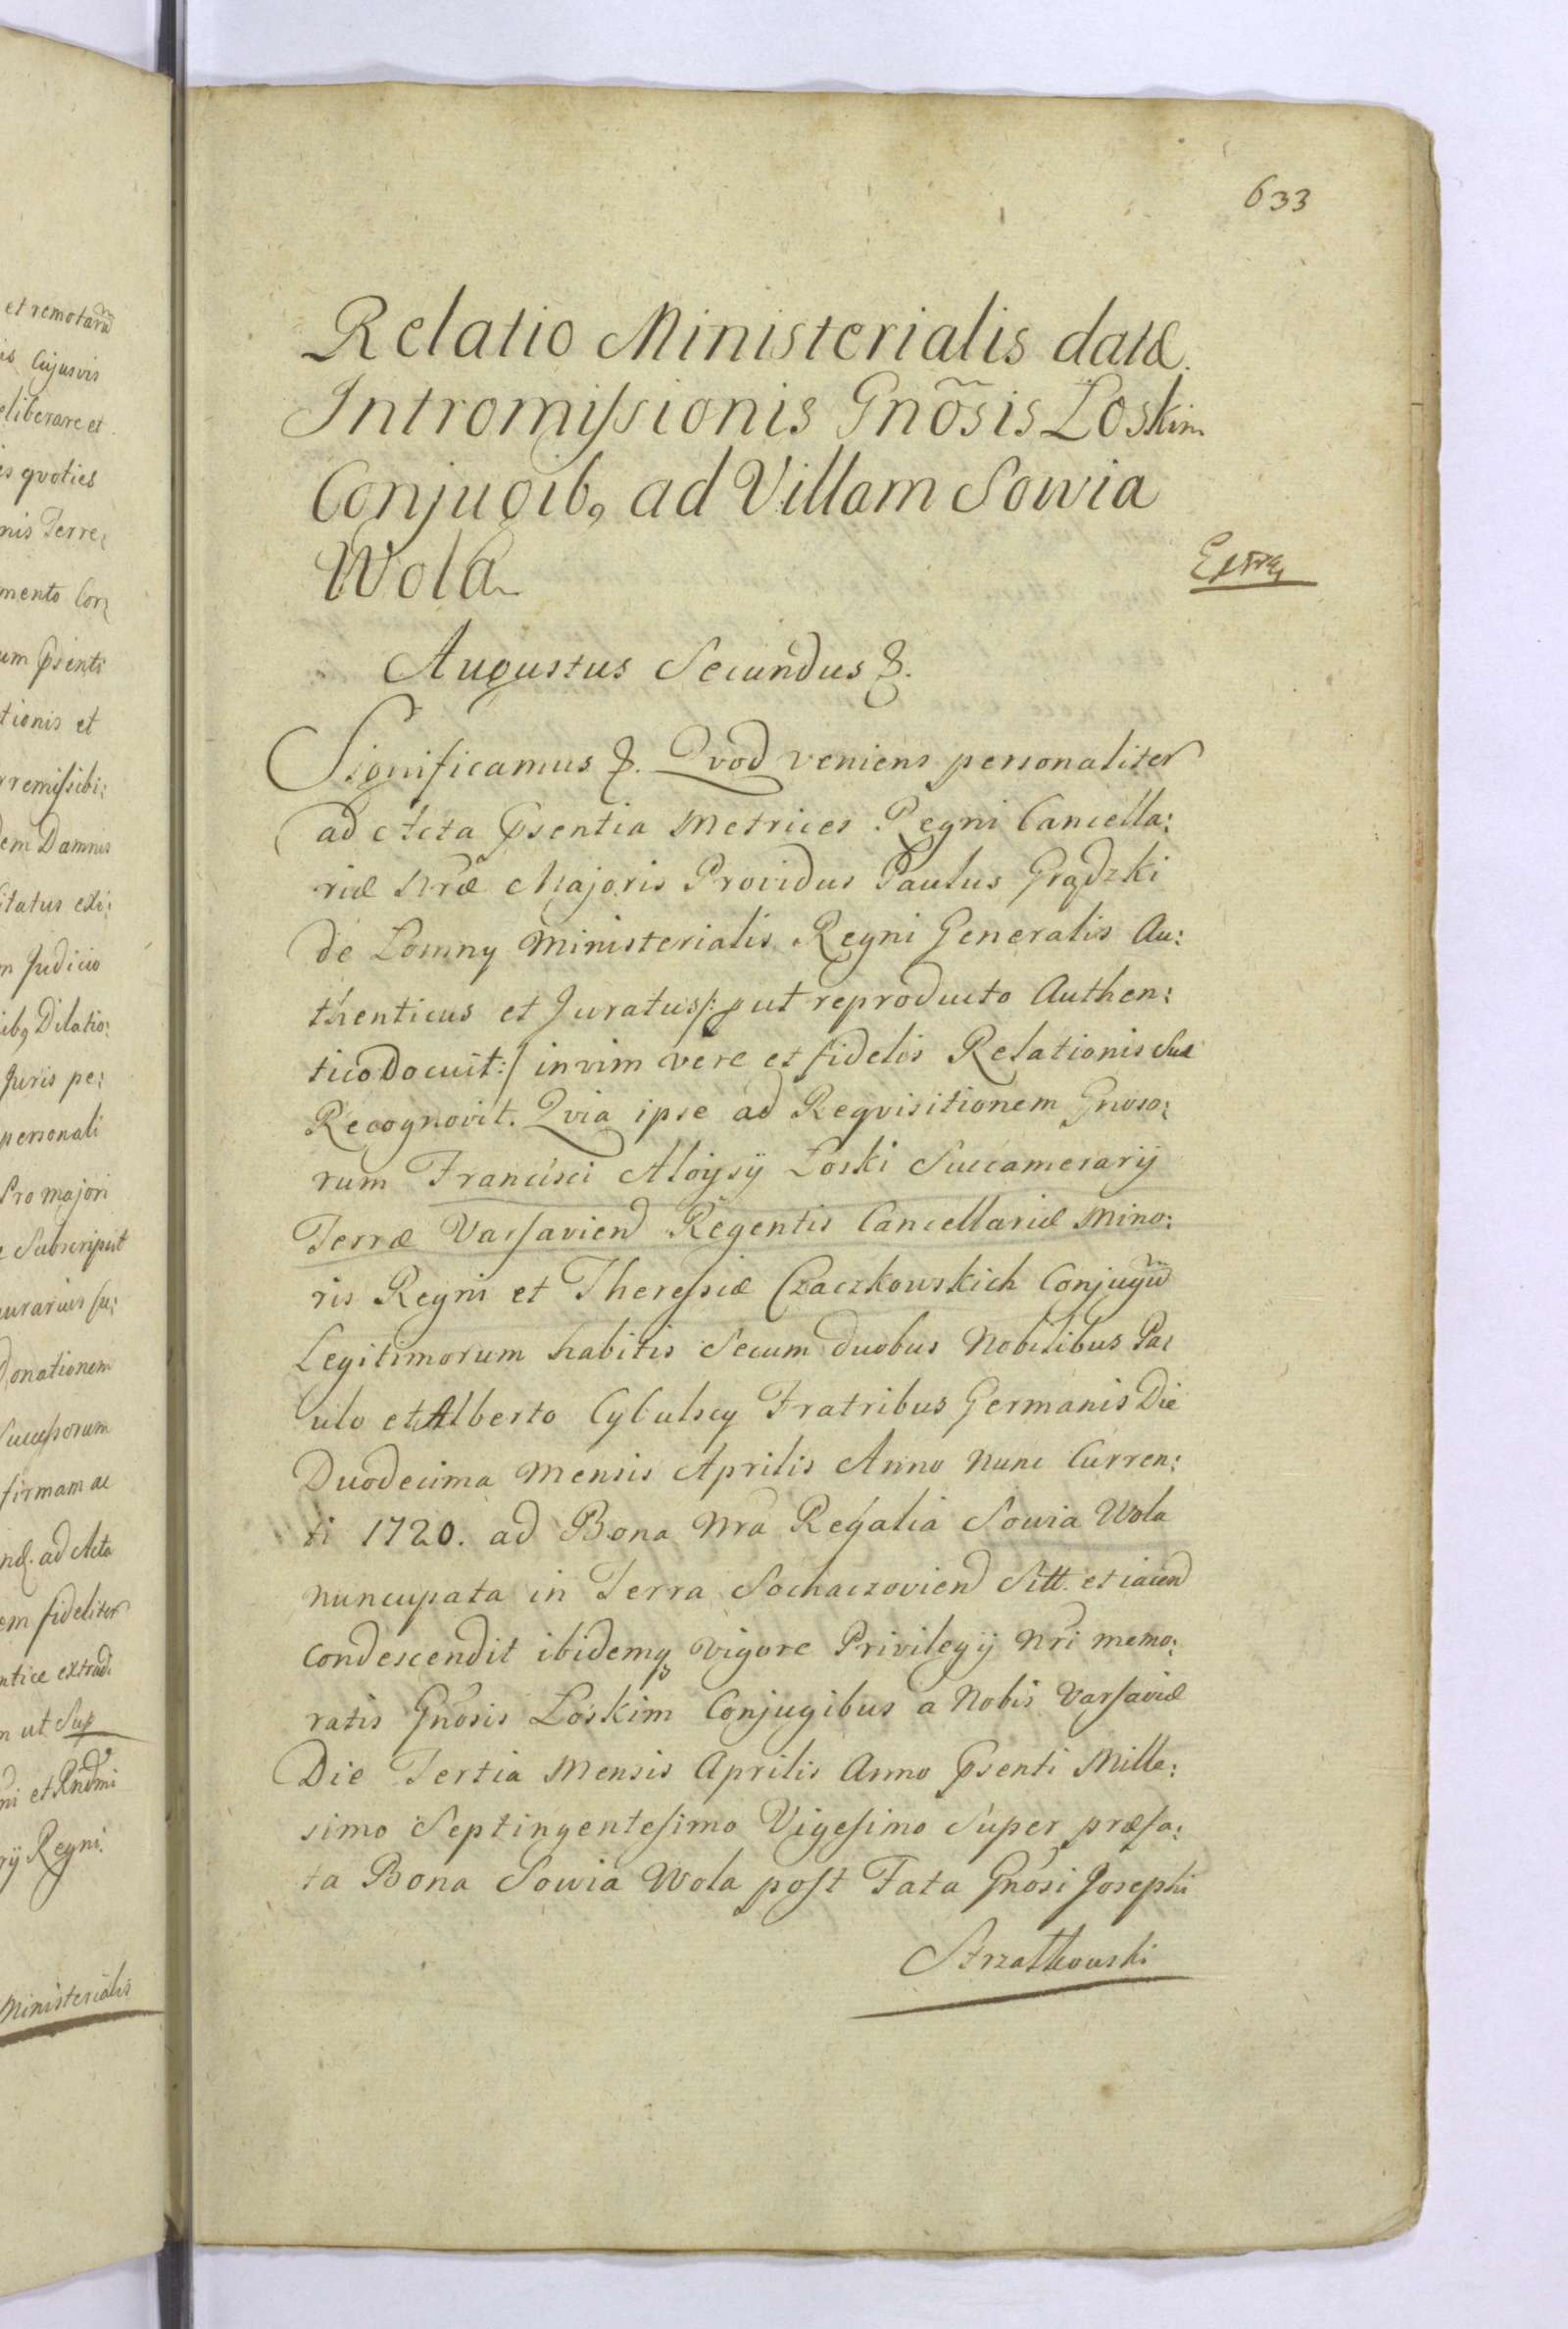 et remotarũ
is Cujusvis
eliberare et
is qvoties
nis Terre:
mento Cor:
um Psenti
tionis et
rremissibi:
dem Damnis
itatus exi:
m Judicio
ibq Dilatio:
Juris pe:
personali
Pro majori
Subscripsit
Donationem
Successorum
firmam ac
ad Acta
em fideliter
ntice extrad.
m ut Sup
ni et Rndmi
rij Regni.
Ministerialis
633
Relatio Ministerialis datæ
Intromissionis Gnõsis Loskim
Conjugibq ad Villam Sowia
Wola
Extra
Augustus Secundus &.
Significamus &. Qvod veniens personaliter
ad Acta Psentia Metrices Regni Cancella:
riæ Nræ Majoris Providus Paulus Grądzki
de Lomny Ministerialis Regni Generalis Au:
thenticus et Juratus /: put reproducto Authen:
tico Docuit :/ in vim vere et fidelis Relationis Suæ
Recognovit. Qvia ipse ad Reqvisitionem Gnoso:
rum Francisci Aloysij Loski Succamerarij
Terræ Varsaviend Regentis Cancellariæ Mino:
ris Regni et Theressiæ Czaczkowskich Conjugũ
Legitimorum habitis Secum duobus Nobilibus Pa:
ulo et Alberto Cybulscy Fratribus Germanis Die
Duodecima Mensis Aprilis Anno Nunc Curren:
ti 1720. ad Bona Nra Regalia Sowia Wola
nuncupata in Terra Sochaczoviend Sitt. et iacend
Condescendit ibidemq vigore Privilegij Nri memo:
ratis Gnosis Loskim Conjugibus a Nobis Varsaviæ
Die Tertia Mensis Aprilis Anno Psenti Mille:
simo Septingentesimo Vigesimo Super præfa:
ta Bona Sowia Wola post Fata Gnosi Josephi
Strzałkowski